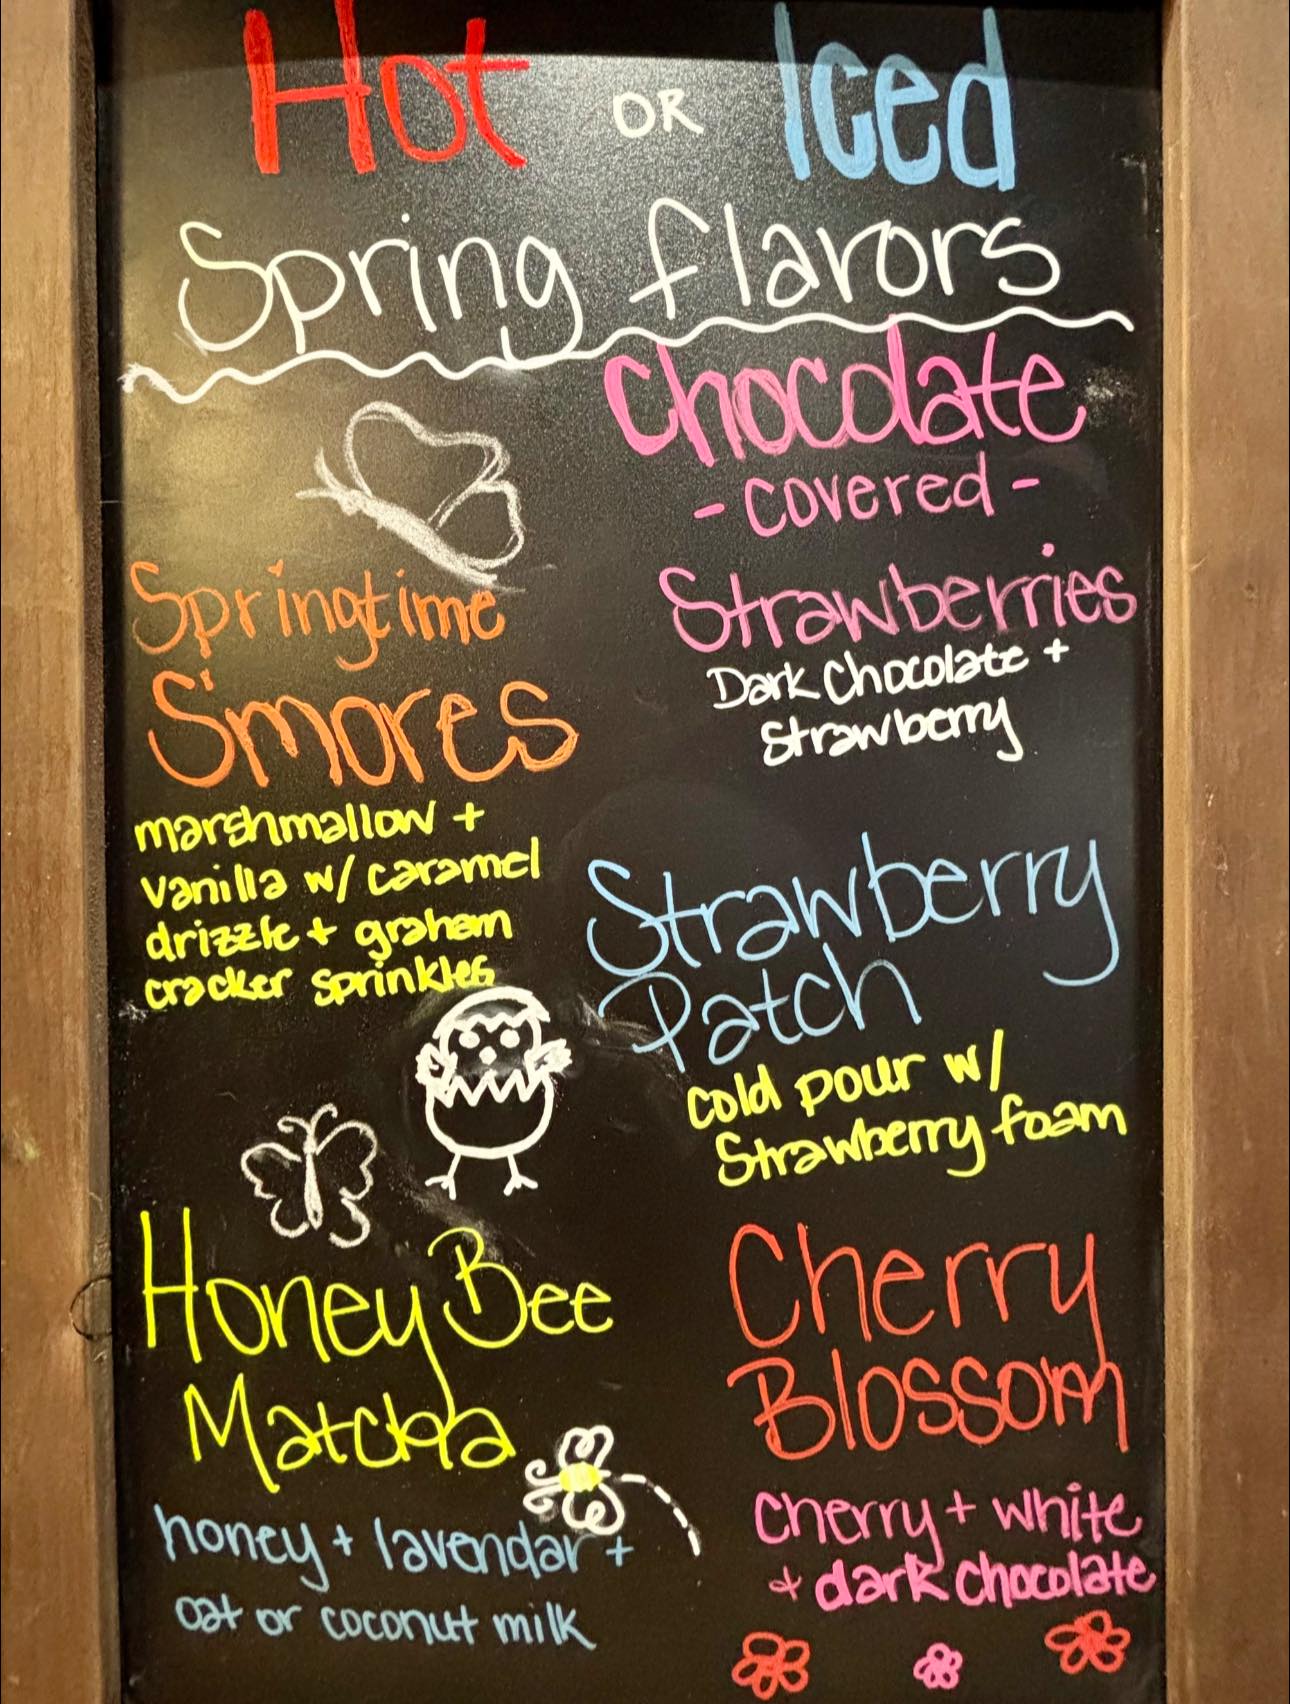 Hot OR Iced
Spring flavors
Chocolate
- covered -
Strawberries
Dark Chocolate +
Strawberry
Springtime
S'mores
marshmallow +
vanilla w/ caramel
drizzle + graham
cracker sprinkles
Strawberry
Patch
cold pour w/
Strawberry foam
Honey Bee
Matcha
honey + lavendar +
oat or coconut milk
Cherry
Blossom
cherry + white
+ dark chocolate